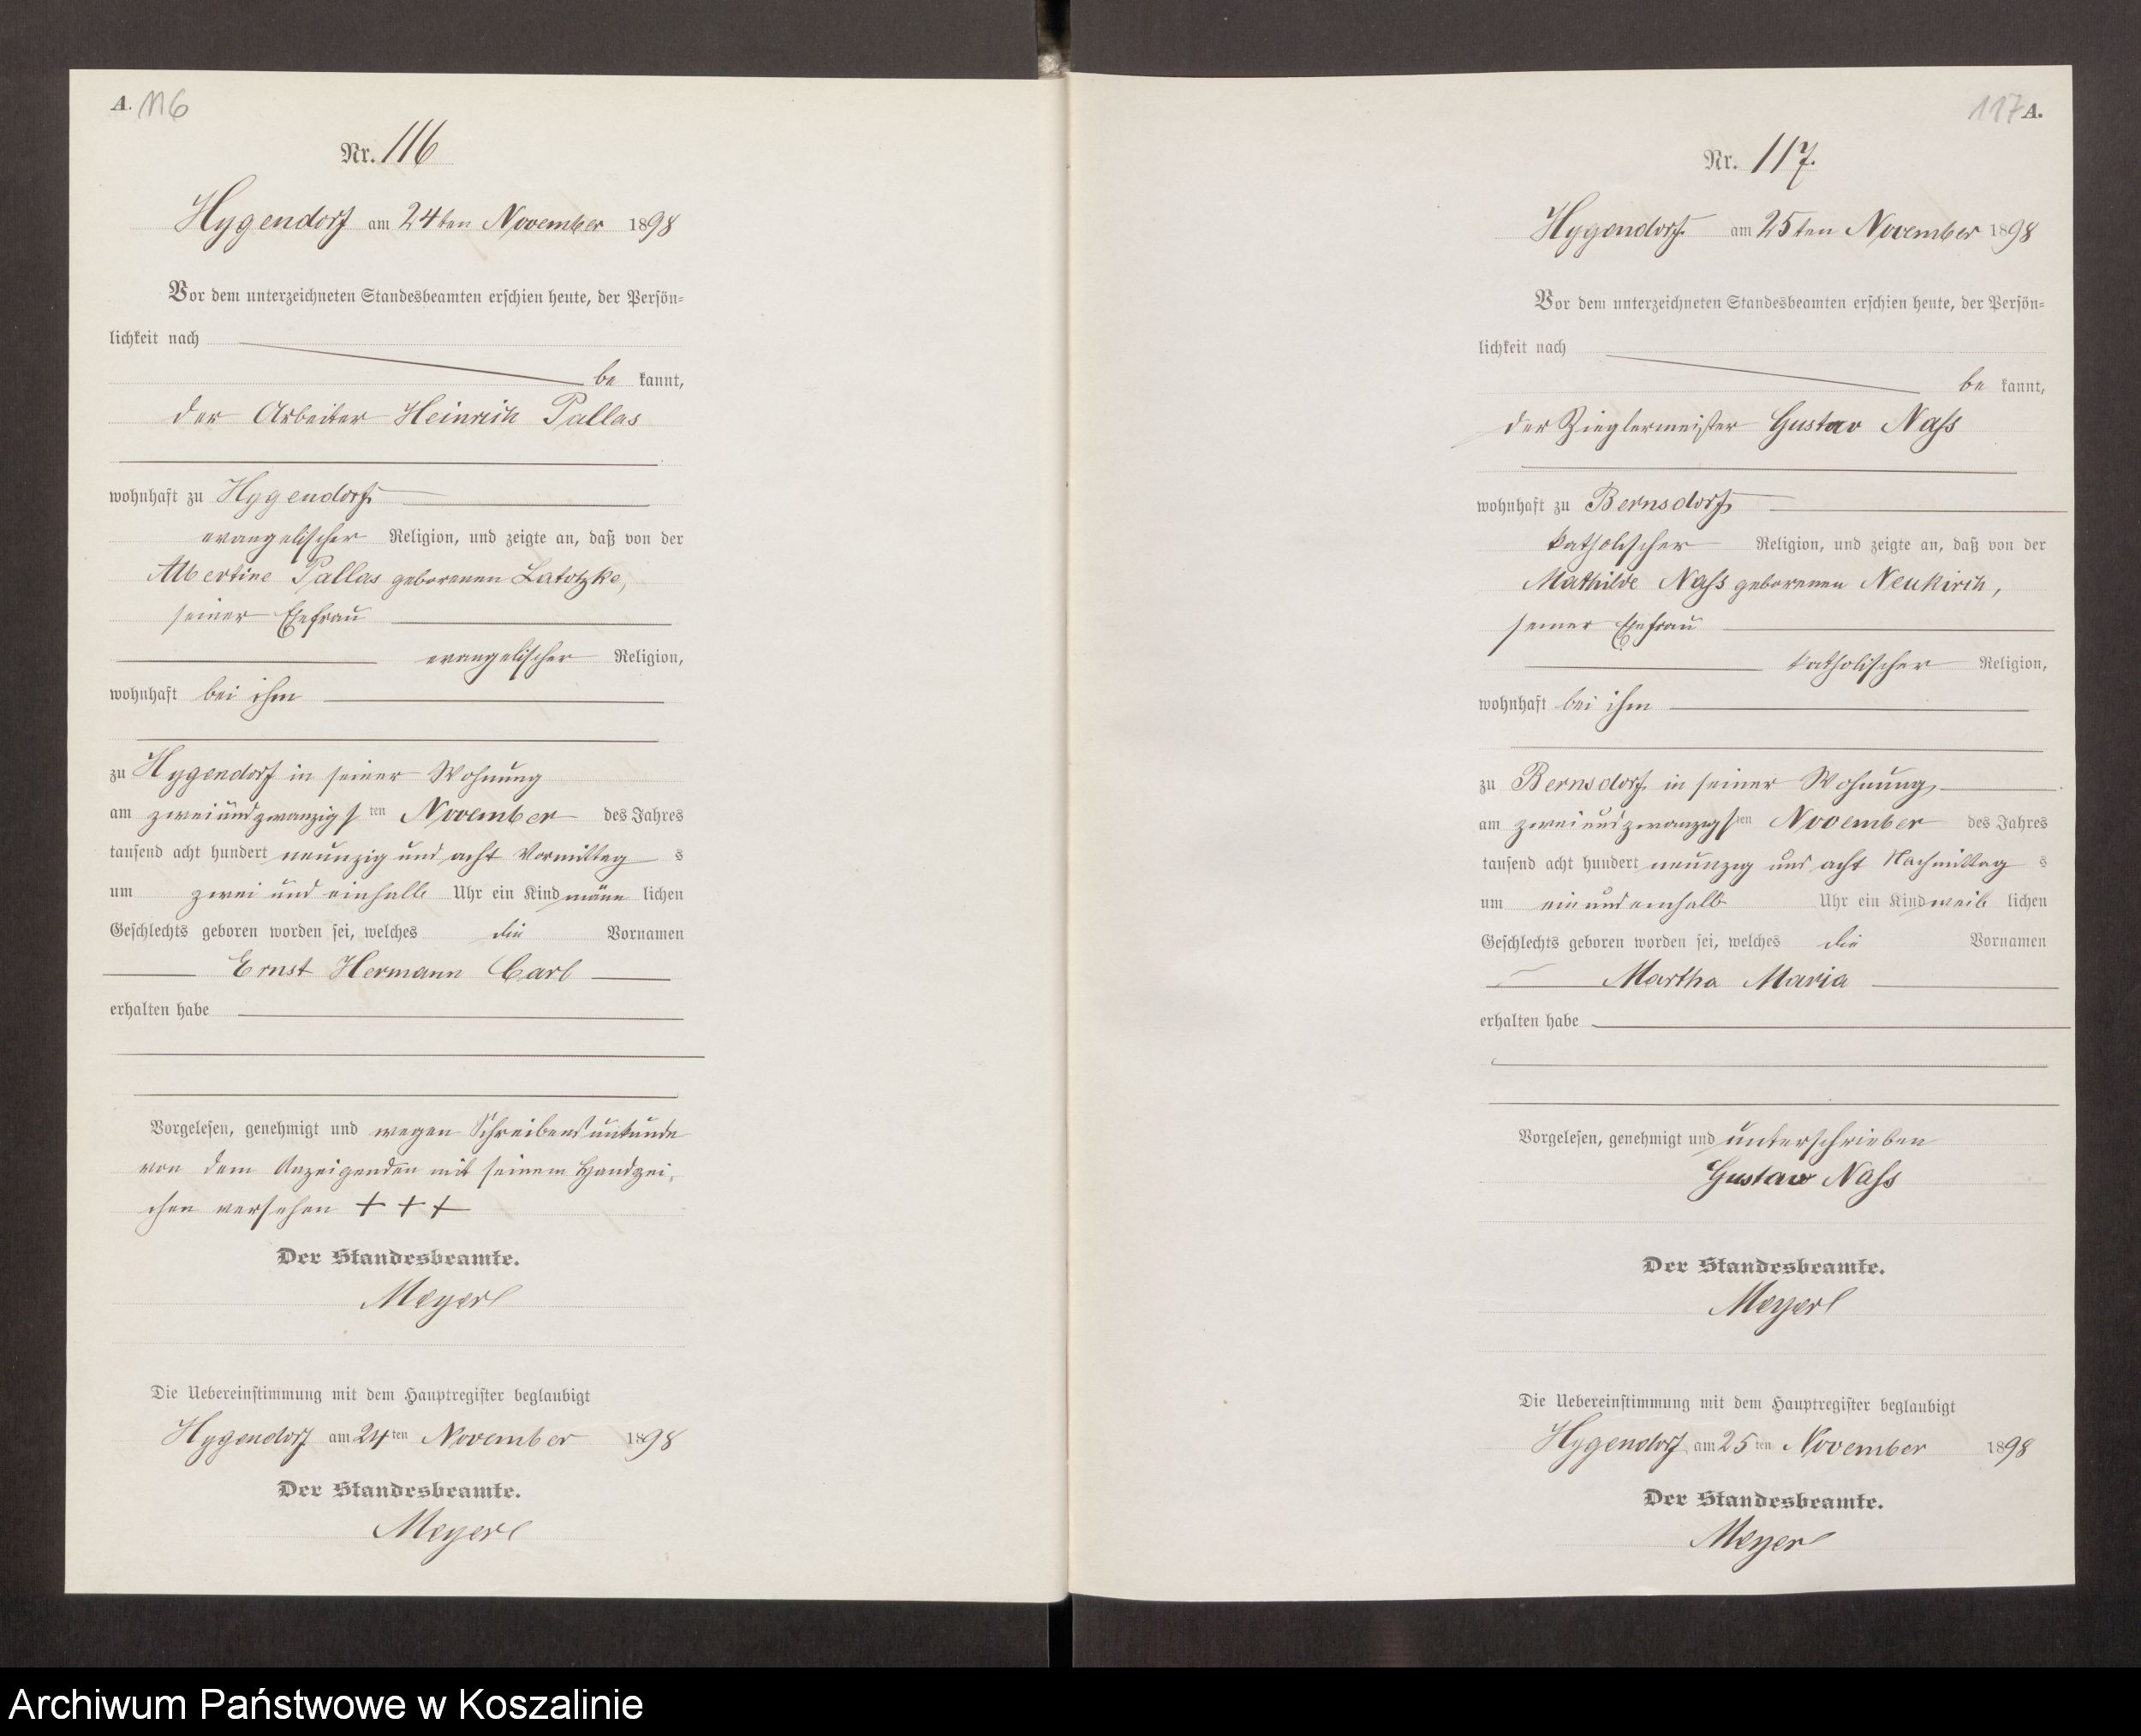 A. 116
Nr. 116
Hygendorf am 24ten November 1898
Vor dem unterzeichneten Standesbeamten erschien heute, der Persön=
lichkeit nach
be kannt,
der Arbeiter Heinrich Pallas
wohnhaft zu Hygendorf
evangelischer Religion, und zeigte an, daß von der
Albertine Pallas geborenen Latotzke,
seiner Ehefrau
evangelischer Religion,
wohnhaft bei ihm
zu Hygendorf in seiner Wohnung
am zweiundzwanzigsten November des Jahres
tausend acht hundert neunzig und acht Vormittag s
um zwei und einhalb Uhr ein Kind männ lichen
Geschlechts geboren worden sei, welches die Vornamen
Ernst Hermann Carl
erhalten habe
Vorgelesen, genehmigt und wegen Schreibensunkunde
von dem Anzeigenden mit seinem Handzei-
chen versehen + + +
Der Standesbeamte.
Meyer
Die Uebereinstimmung mit dem Hauptregister beglaubigt
Hygendorf am 24ten November 1898
Der Standesbeamte.
Meyer
117 A.
Nr. 117.
Hygendorf am 25ten November 1898
Vor dem unterzeichneten Standesbeamten erschien heute, der Persön=
lichkeit nach
be kannt,
der Zieglermeister Gustav Nass
wohnhaft zu Bernsdorf
katholischer Religion, und zeigte an, daß von der
Mathilde Nass geborenen Neukirch,
seiner Ehefrau
katholischer Religion,
wohnhaft bei ihm
zu Bernsdorf in seiner Wohnung
am zweiundzwanzigsten November des Jahres
tausend acht hundert neunzig und acht Nachmittag s
um ein und einhalb Uhr ein Kind weib lichen
Geschlechts geboren worden sei, welches die Vornamen
Martha Maria
erhalten habe
Vorgelesen, genehmigt und unterschrieben
Gustav Nass
Der Standesbeamte.
Meyer
Die Uebereinstimmung mit dem Hauptregister beglaubigt
Hygendorf am 25ten November 1898
Der Standesbeamte.
Meyer
Archiwum Państwowe w Koszalinie